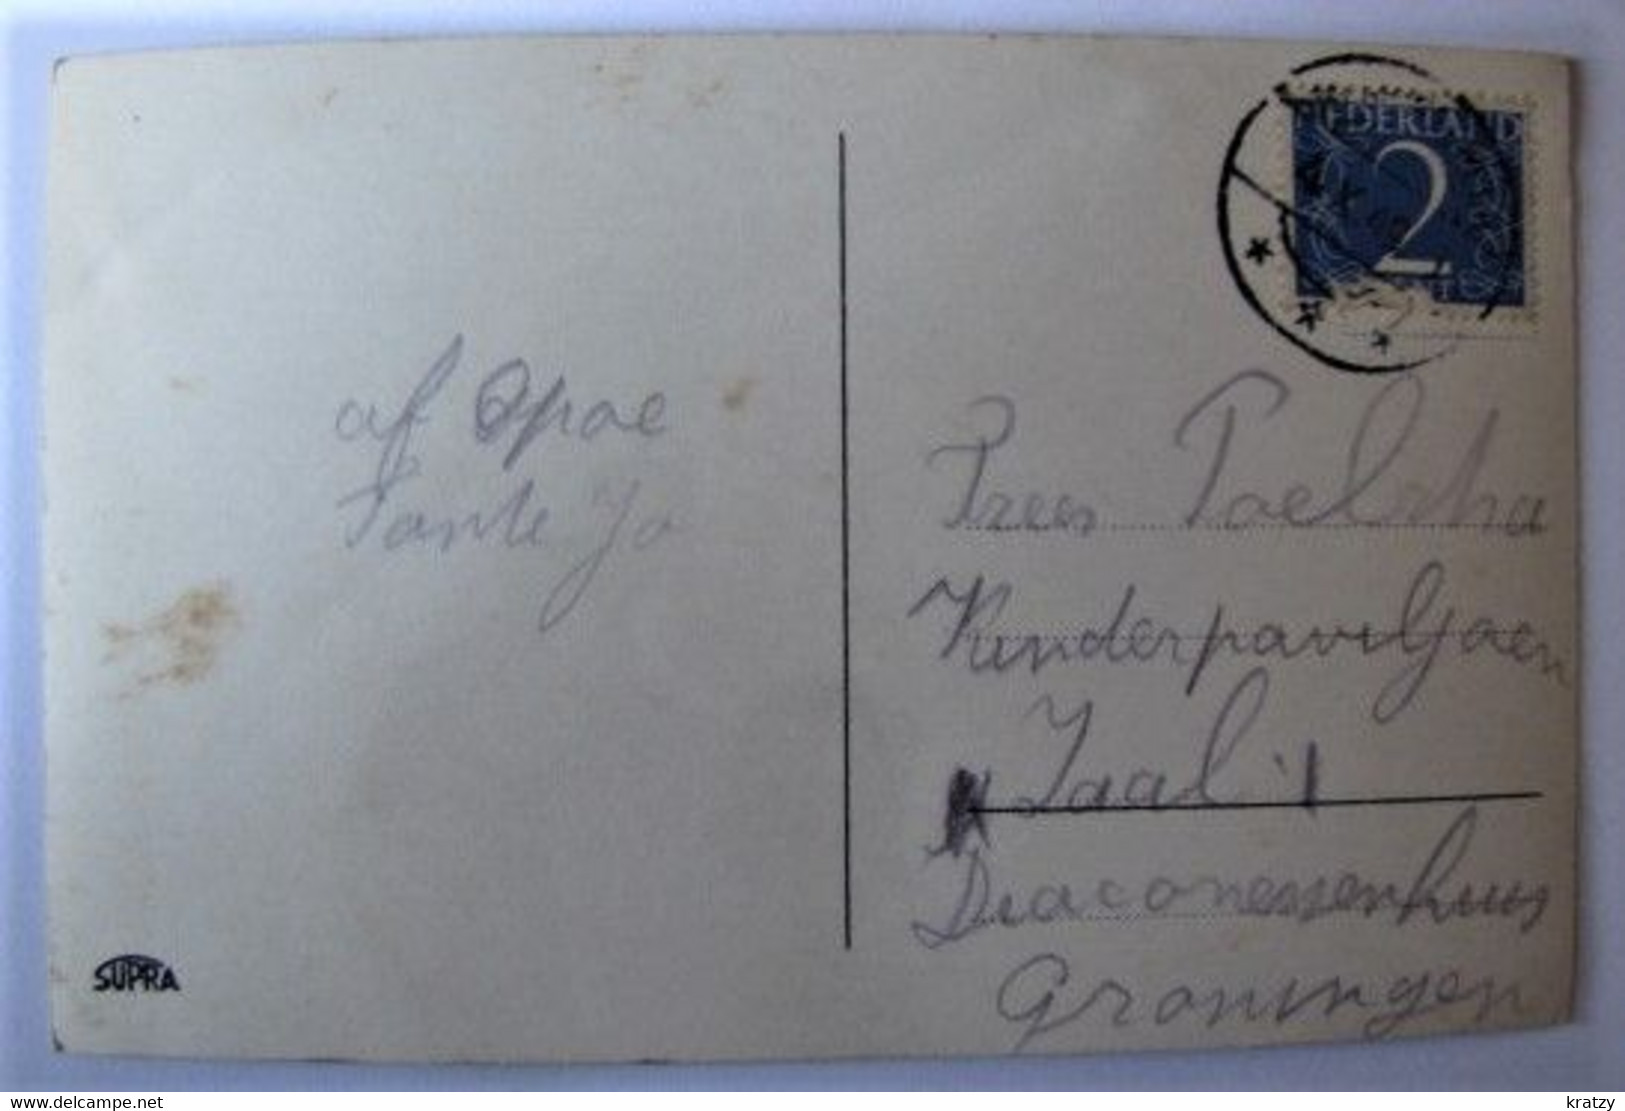 NEDERLAND
2
af Opoe
Tante Jo
Kinderpaviljoen
Zaal 1
Diaconessenhuis
Groningen
SUPRA
delcampe.net
kratzy